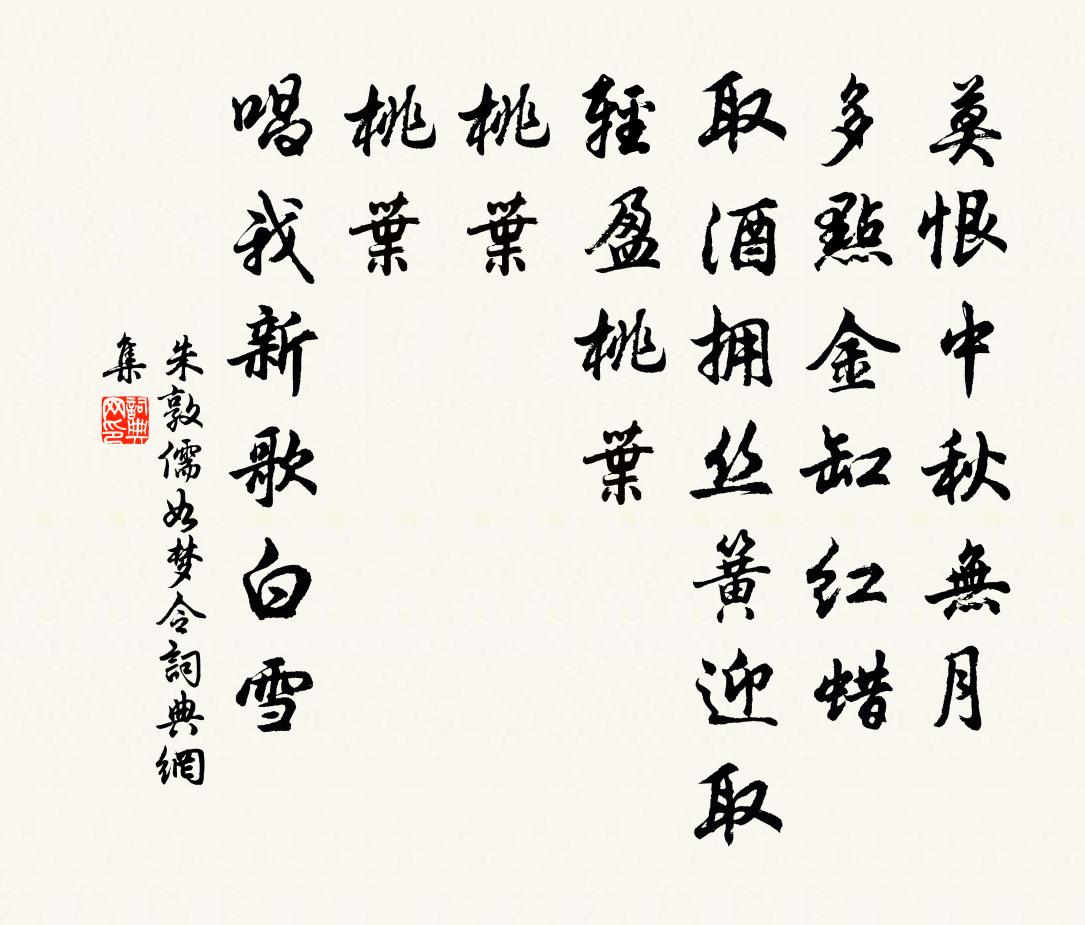 莫恨中秋無月
多點金缸红蜡
取酒拥丝簧迎取
輕盈桃葉
桃葉
桃葉
唱我新歌白雪
朱敦儒如梦令詞典網
集
詞典网印